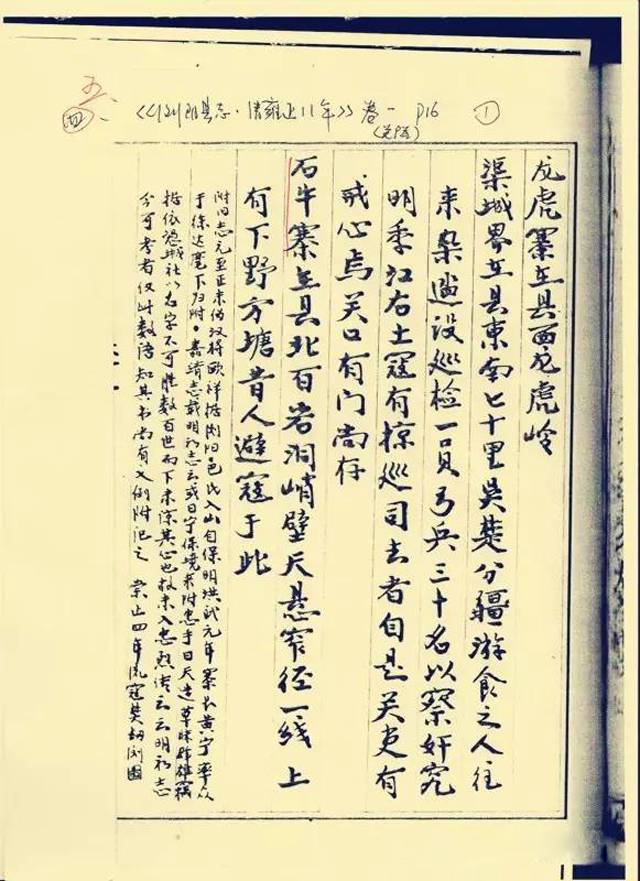 五、
四
《浏阳县志·清雍正11年》卷一 P16 ①
龙虎寨在县西龙虎岭
渠城界在县东南七十里吴楚分疆游食之人往
来杂遝设巡检一员弓兵三十名以察奸宄
明季江右土寇有掠巡司去者自是关吏有
戒心焉关口有门尚存
石牛寨在县北百岩洞峭壁天悬窄径一线上
有下野方塘昔人避寇于此
附旧志元至正末伪汉将欧祥据浏阳邑民入山自保明洪武元年寨长黄宁率众
于徐达麾下归附·嘉靖志载明初志云或曰宁保境来附忠乎曰天造草昧群雄窃
据依凭城社以名字不可胜数百世而下未谅其心也故未入忠烈传云云明初志
今可考者仅此数语知其书尚有义例附记之 崇正四年流寇焚劫浏